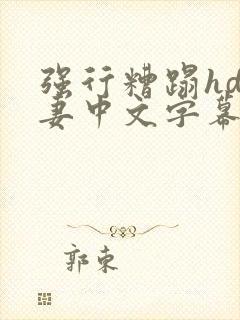 强行糟蹋hd
妻中文字幕
郭束